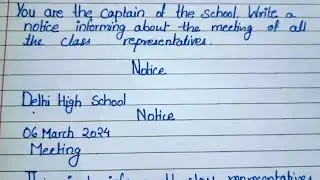 You are the captain of the school. Write a
notice informing about the meeting of all
the class representatives.
Notice
Delhi High School
Notice
06 March 2024
Meeting
class representatives